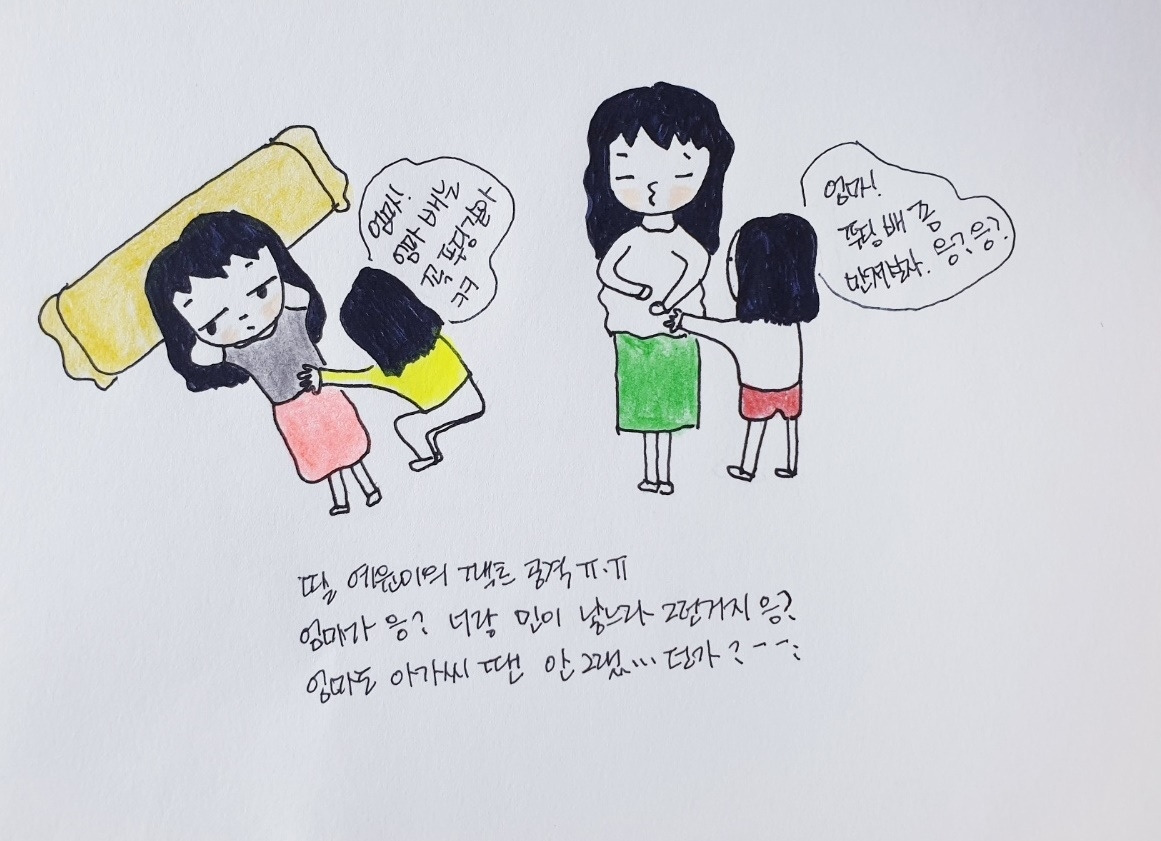 엄마!
엄마 뱃속
꼭 푸딩같아
ㅋㅋ
엄마!
뚱땡 배 좀
만져보자. 응? 응?
딸 예원이의 팩트 공격 ㅠ.ㅠ
엄마가 응? 너랑 민이 낳느라 그런거지 응?
엄마도 아가씨 땐 안 그랬... 던가? ㅡㅡ;